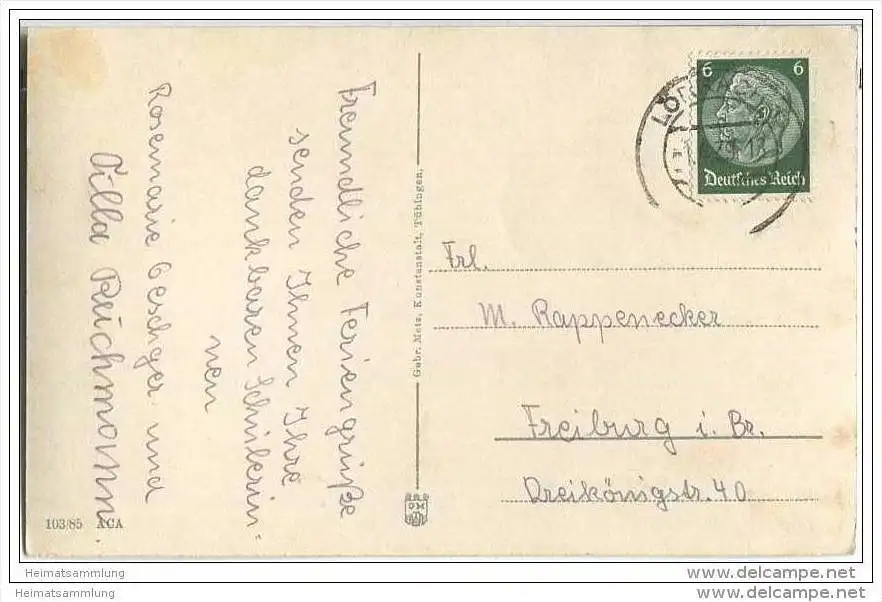 Freundliche Feriengrüße
senden Ihnen Ihre
dankbaren Schülerin
nen
Rosemarie Oeschger und
Tilla Reichmann.
103/85 ACA
Gebr. Metz, Kunstanstalt, Tübingen.
6 6
Deutsches Reich
Frl.
M. Rappenecker
Freiburg i. Br.
Dreikönigstr. 40
Heimatsammlung
Heimatsammlung
www.delcampe.net
www.delcampe.net